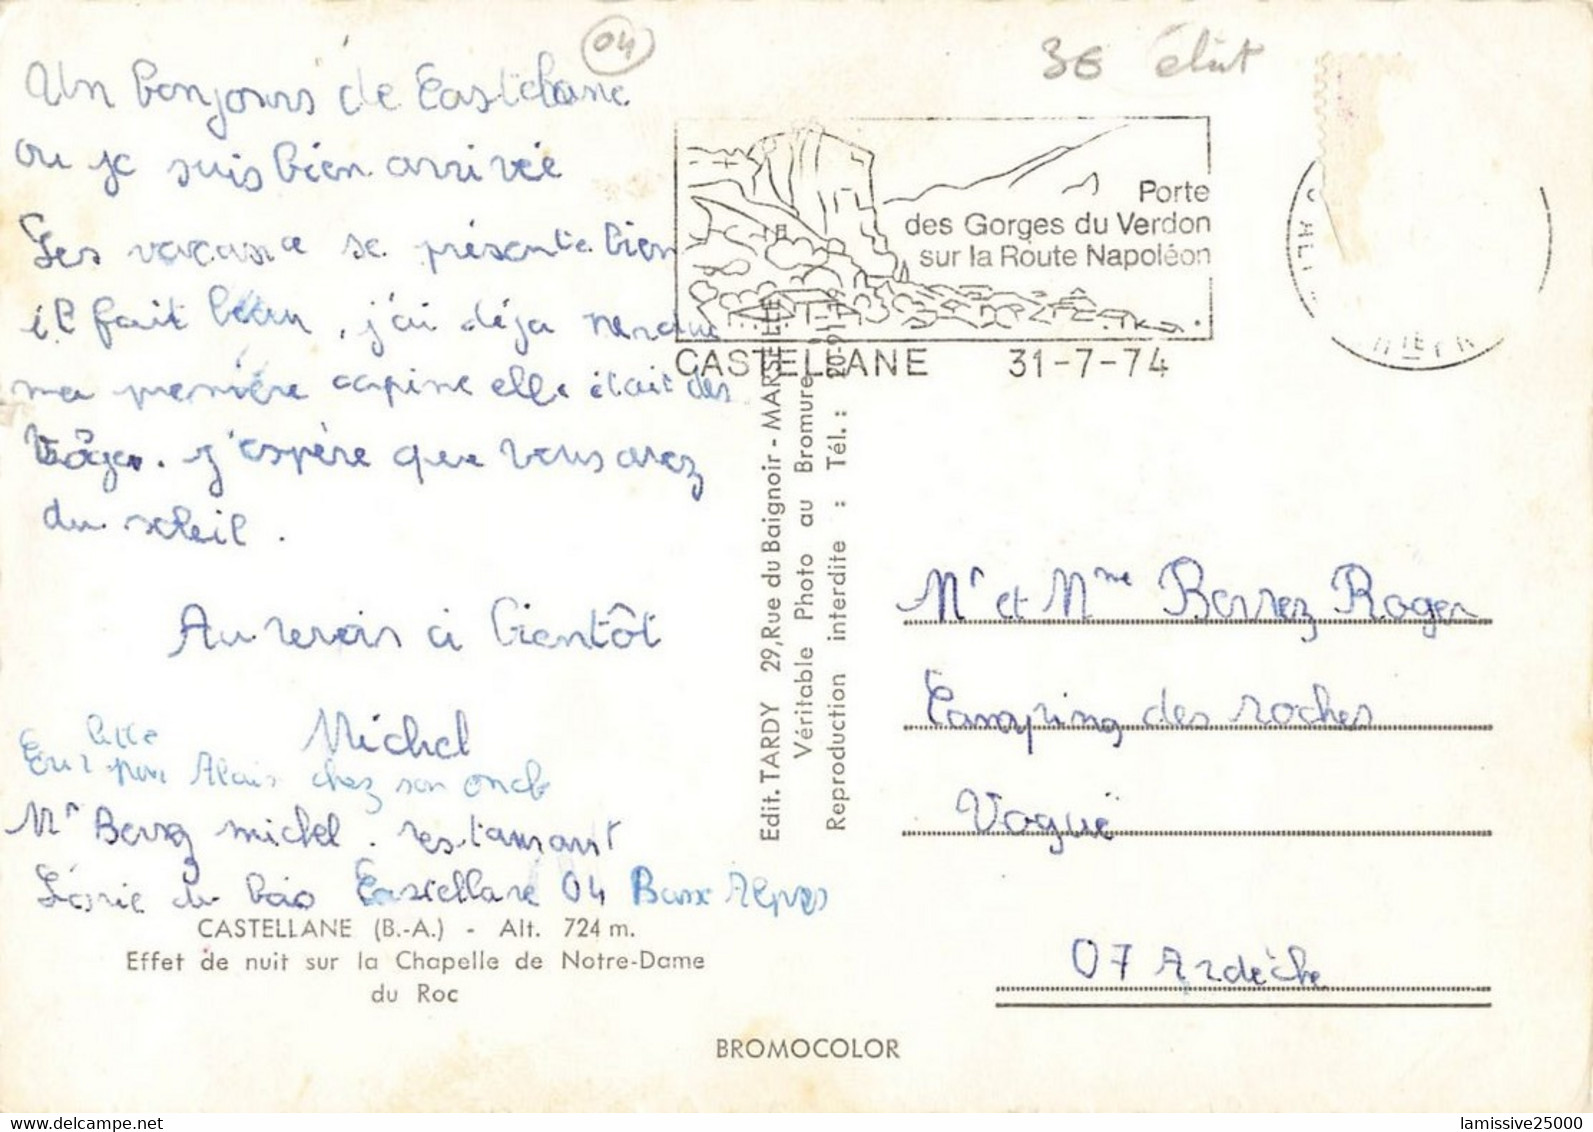 04
3€ état
Un bonjours de Castellane
ou je suis bien arrivée
Les vacance se présente bien
il fait beau, j'ai déja
ma première copine elle était des
Vôges. j'espère que vous avez
du soleil.
Au revoir à bientôt
Michel
chez son oncle
Mr michel. restaurant
du bois Castellane 04 Basse Alpes
CASTELLANE (B.-A.) - Alt. 724 m.
Effet de nuit sur la Chapelle de Notre-Dame
du Roc
Porte
des Gorges du Verdon
sur la Route Napoléon
CASTELLANE 31-7-74
Edit. TARDY 29, Rue du Baignoir - MARSEILLE
Véritable Photo au Bromure
Reproduction interdite : Tél. : 20-91-
Mr et Mme Barrez Roger
Camping des roches
Vogué
07 Ardèche
BROMOCOLOR
lamissive25000